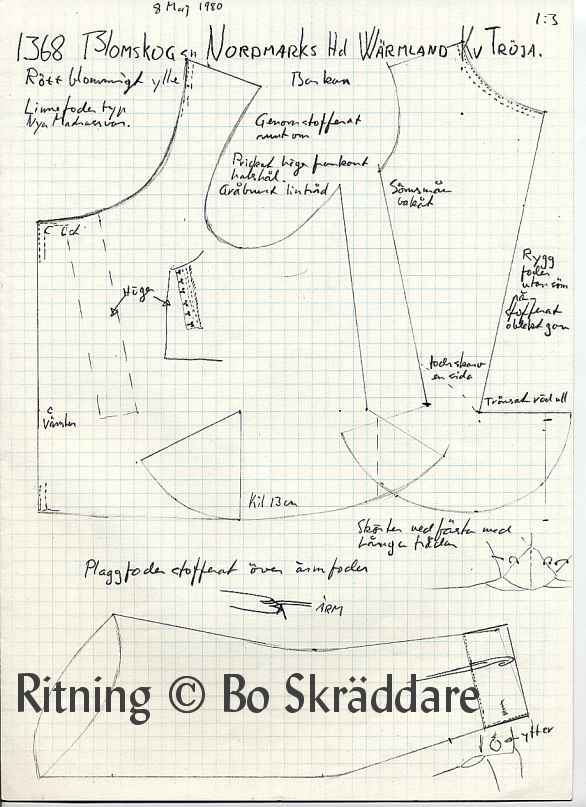 8 Maj 1980
1:3
1368 Blomskog sn Nordmarks Hd Wärmland Kv Tröja.
Rött blommigt ylle
Linnefoder typ
Nya
Genomstofferat
runt om
Prickat höger framkant
halshål.
Gråbrunt lintråd
Sömsmån
bakåt
C
Höger
Rygg
foder
utan söm
stofferat
oblekt garn
foderskarv
en sida
Tränsat röd ull
C
Vänster
Kil 13 cm
Skörten nedfästa med
långa trådar
Plaggfoder stofferat över ärmfoder
ÄRM
Ritning © Bo Skräddare
ytter